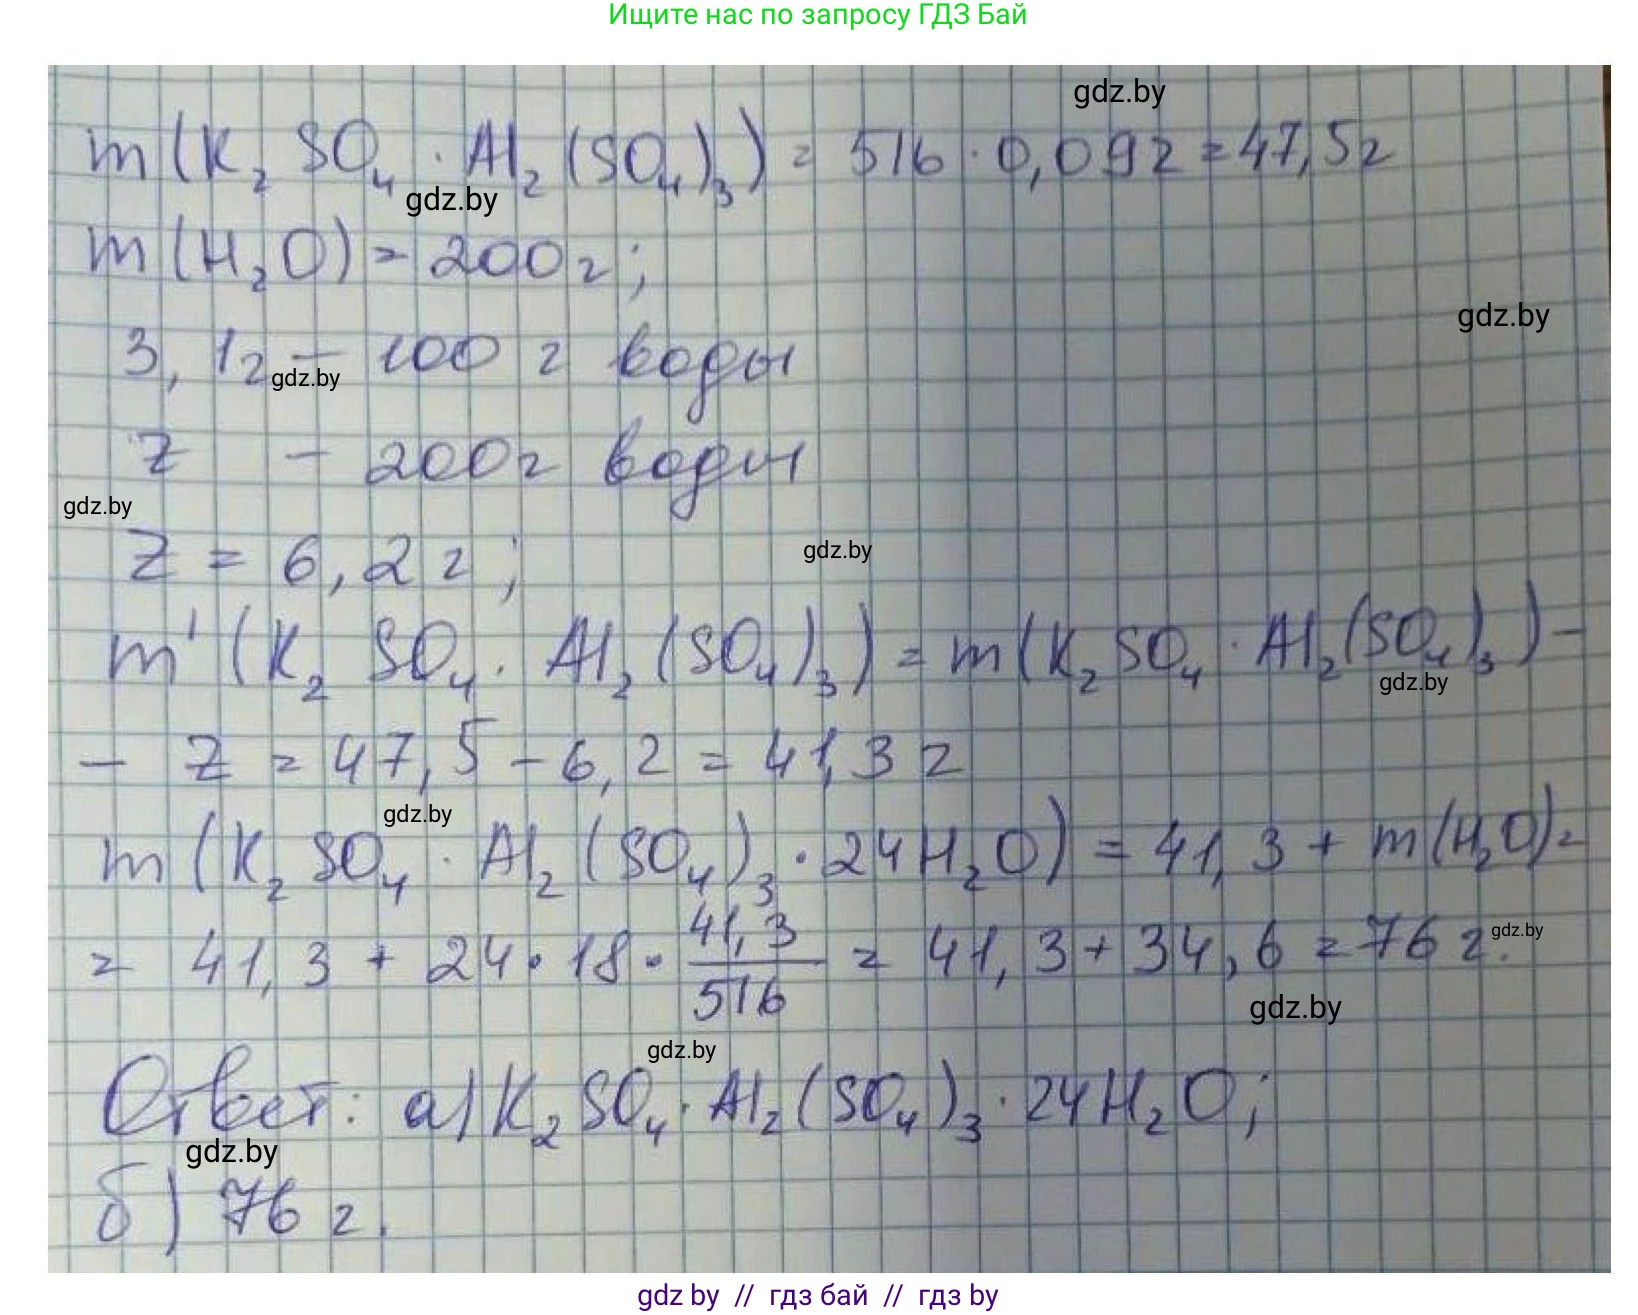 Ищите нас по запросу ГДЗ Бай
gdz.by
m(K₂SO₄ · Al₂(SO₄)₃) = 516 · 0,092 = 47,5г
gdz.by
m(H₂O) = 200г;
gdz.by
3,1г – 100 г воды
gdz.by
Z – 200г воды
gdz.by
Z = 6,2 г;
gdz.by
m'(K₂SO₄ · Al₂(SO₄)₃) = m(K₂SO₄ · Al₂(SO₄)₃) –
gdz.by
– Z = 47,5 – 6,2 = 41,3 г
gdz.by
m(K₂SO₄ · Al₂(SO₄)₃ · 24H₂O) = 41,3 + m(H₂O) =
= 41,3 + 24 · 18 · 41,3/516 = 41,3 + 34,6 = 76 г.
gdz.by
gdz.by
gdz.by
Ответ: а) K₂SO₄ · Al₂(SO₄)₃ · 24H₂O;
gdz.by
б) 76 г.
gdz by // гдз бай // gdz by